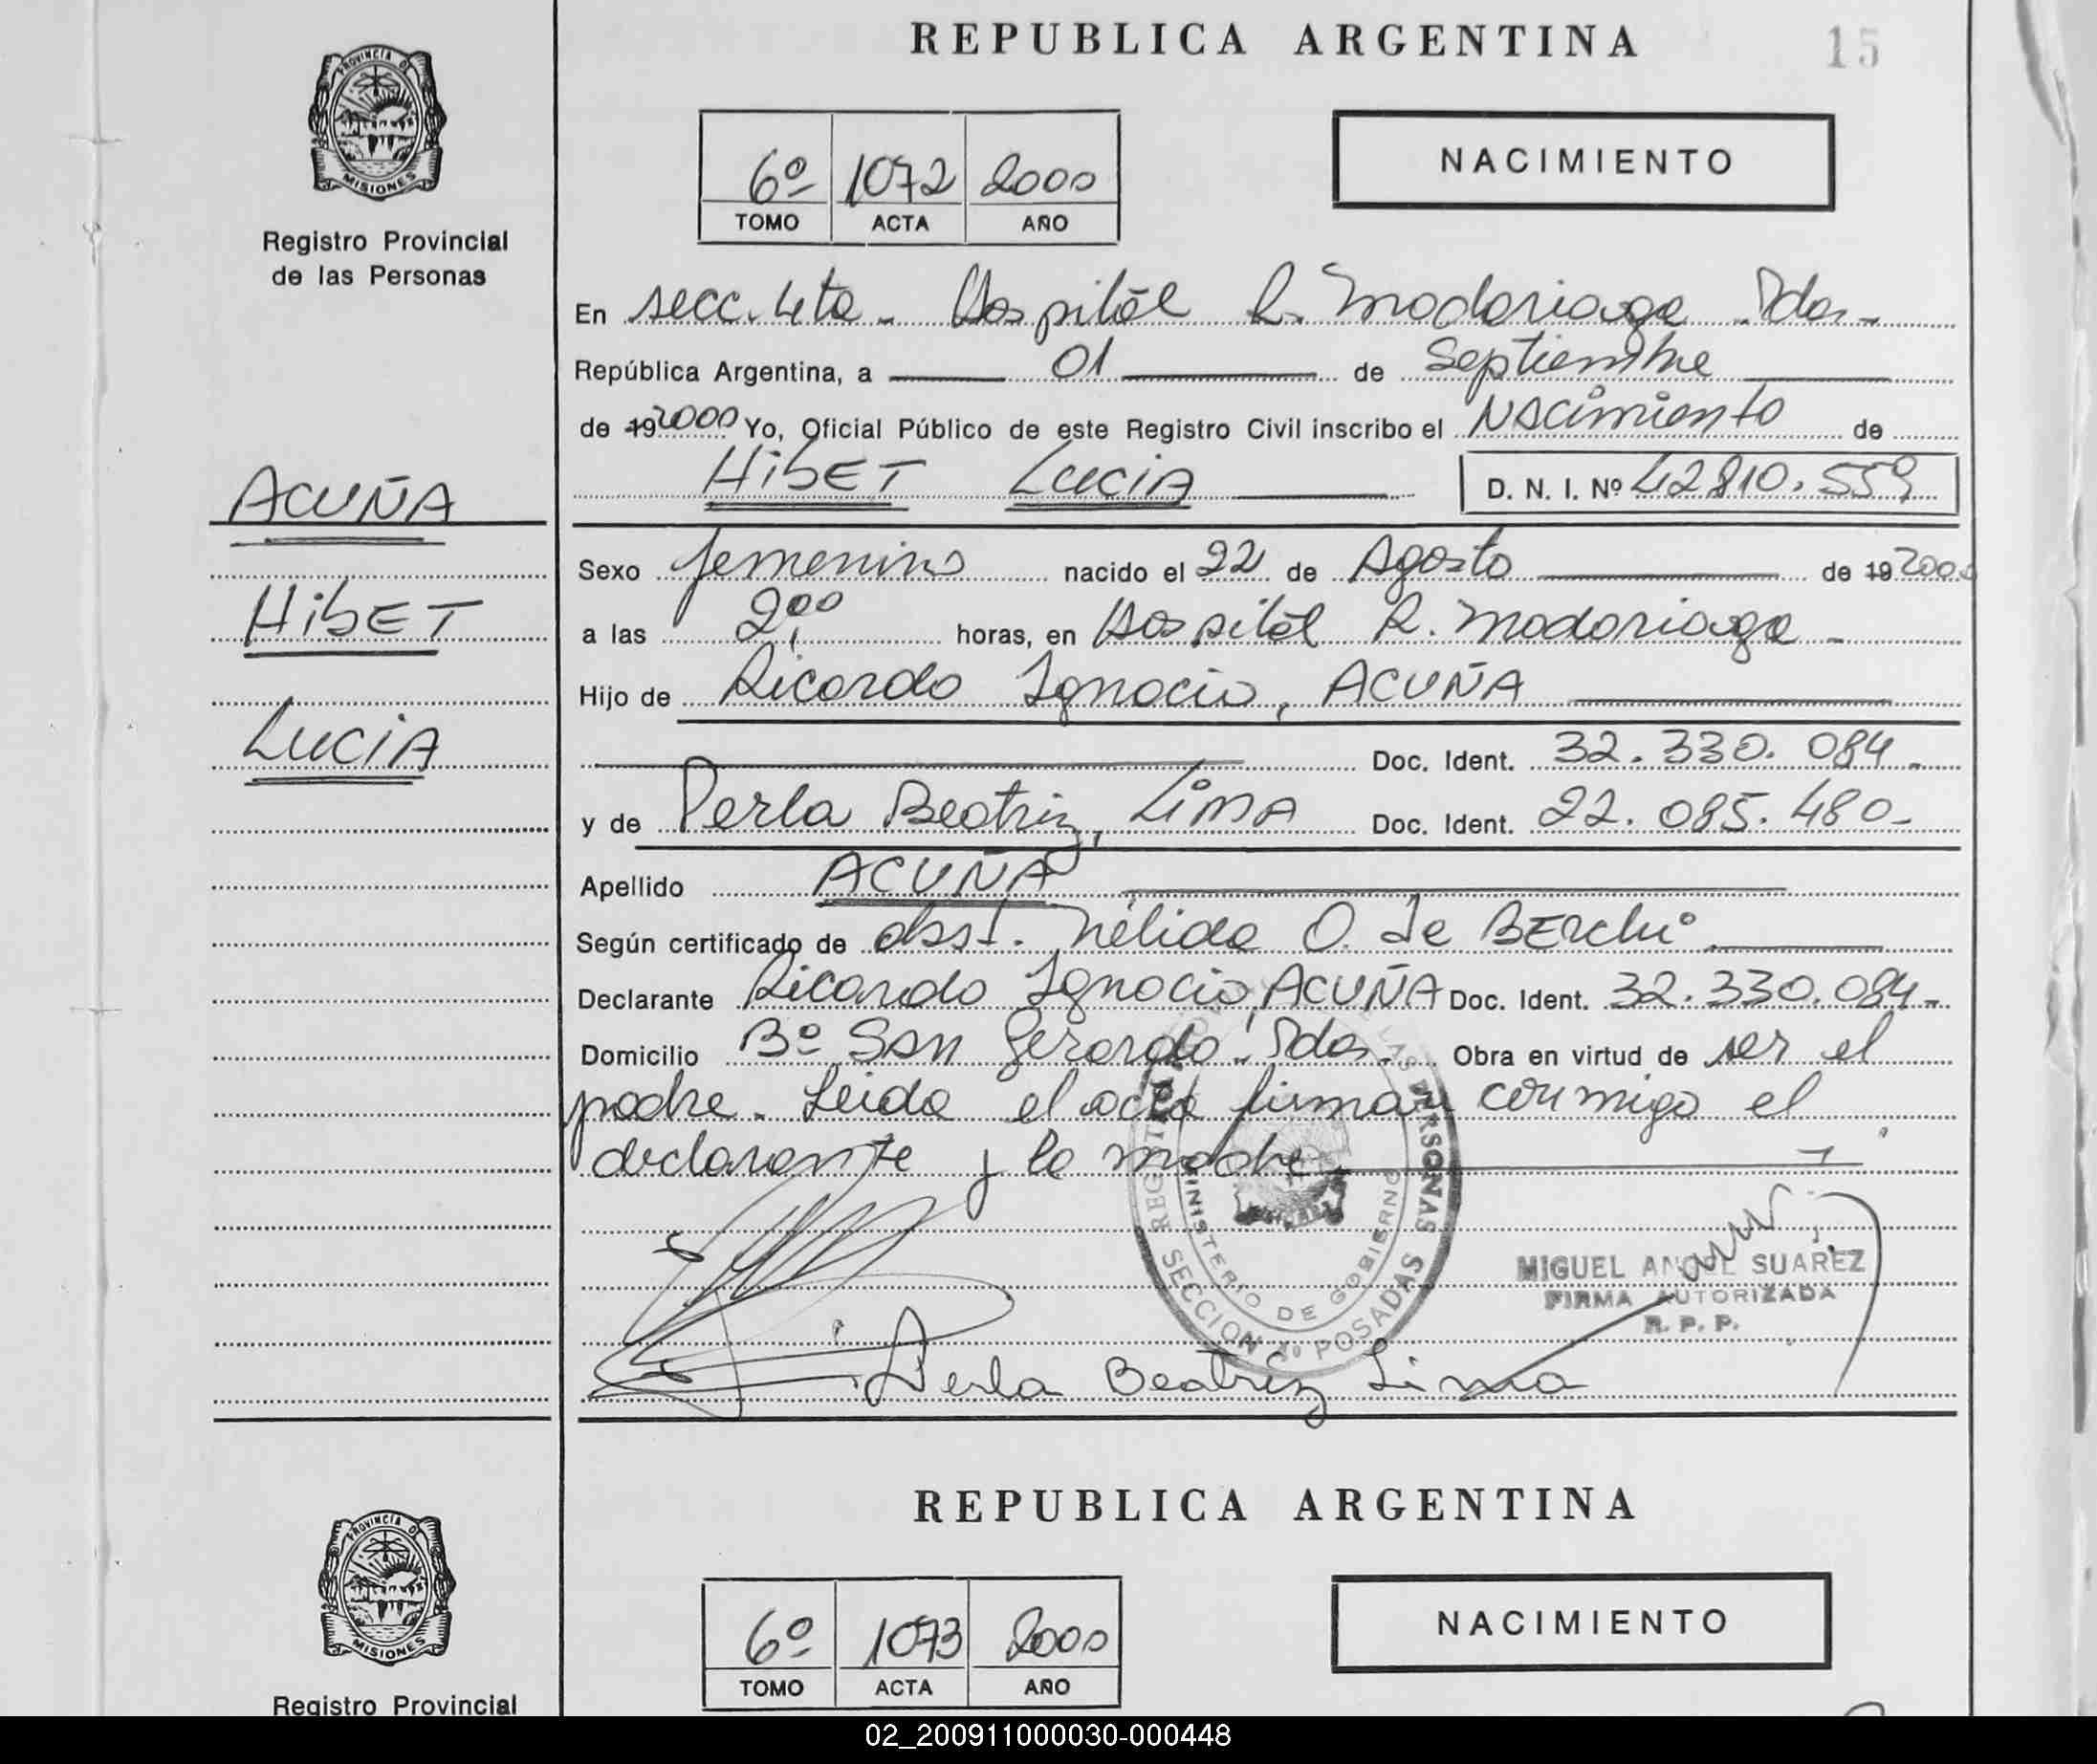 REPUBLICA ARGENTINA
15
PROVINCIA DE
MISIONES
Registro Provincial
de las Personas
6º 1072 2000
TOMO ACTA AÑO
NACIMIENTO
En secc. 4ta - Hospital R. Madariaga - Pdas -
República Argentina, a 01 de Septiembre
de 19 2000 Yo, Oficial Público de este Registro Civil inscribo el Nacimiento de
HibET LuciA D. N. I. Nº 42810.559
ACUÑA
HibET
LuciA
Sexo femenino nacido el 22 de Agosto de 19 2000
a las 2,00 horas, en Hospital R. Madariaga -
Hijo de Ricardo Ignacio, ACUÑA
Doc. Ident. 32.330.084 -
y de Perla Beatriz, LiMA Doc. Ident. 22.085.480 -
Apellido ACUÑA
Según certificado de obst. Nélida O. de BERchi
Declarante Ricardo Ignacio, ACUÑA Doc. Ident. 32.330.084 -
Domicilio Bº San Gerardo - Pdas - Obra en virtud de ser el
padre. Leida el acta firman conmigo el
declarante y la madre
LAS PERSONAS
MINISTERIO DE GOBIERNO
SECCION 4º POSADAS
MIGUEL ANGEL SUAREZ
FIRMA AUTORIZADA
R. P. P.
Perla Beatriz Lima
REPUBLICA ARGENTINA
PROVINCIA DE
MISIONES
Registro Provincial
6º 1073 2000
TOMO ACTA AÑO
NACIMIENTO
02_200911000030-000448